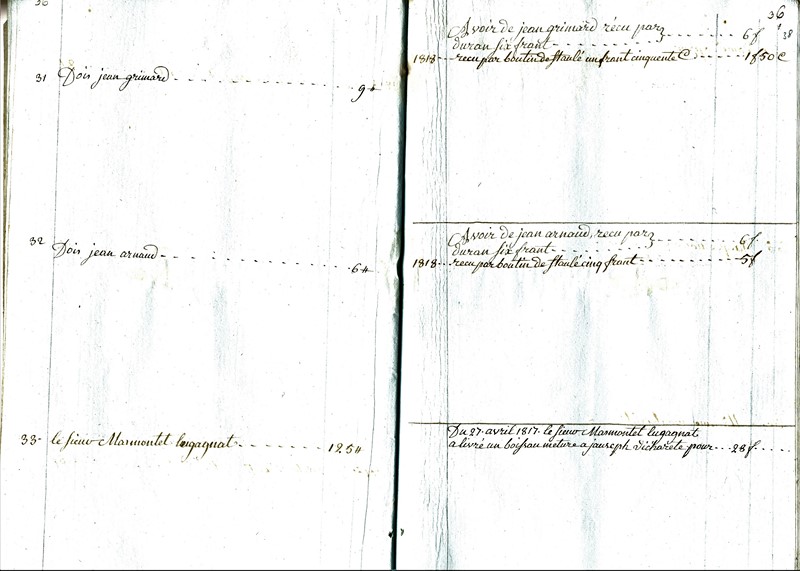 31 Dois jean grimard 9 ₶
32 Dois jean arnaud 6 ₶
33 le sieur Marmontel lugagnat 125 ₶
36
38
Avoir de jean grimard récu par
duran six frant 6 f
1818 recu par boutin de staulé un frant cinquente C 1 f 50 c
Avoir de jean arnaud, recu par
duran six frant 6 f
1818 recu par boutin de staulé cinq frant 5 f
Du 27 avril 1817 le sieur Marmontel lugagnat
a livré un boissau meture a jauseph dicharete pour 28 f